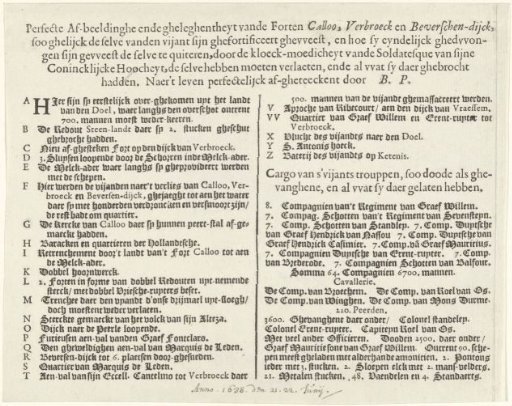 Perfecte Af-beeldinghe ende gheleghentheyt vande Forten Calloo, Verbroeck en Beverschen-dijck,
soo ghelijck de selve vanden vijant sijn ghefortificeert gheweest, en hoe sy eyndelijck ghedwon-
gen sijn geweest de selve te quiteren, door de kloeck-moedicheyt vande Soldatesque van sijne
Conincklijcke Hoocheyt, de selve hebben moeten verlaeten, ende al wat sy daer ghebrocht
hadden. Naer't leven perfectelijck af-gheteeckent door B. P.
A Hier sijn sy eerstelijck over-ghekomen uyt het lande
van den Doel, waer langhs den overschot ontrent
700. mannen moest weder-keeren.
B De Redout Steen-landt daer sp 2. stucken gheschut
ghebrocht hadden.
C Nieu af-ghesteken Fort op den dijck van Verbroeck.
D 3. Sluysen loopende door de Schorren inde Melck-ader.
E De Melck-ader waer langhs sy gheprovideert werden
met de schepen.
F Hier werden de vijanden naer't verlies van Calloo, Ver-
broeck en Beversen-dijck, ghejaeght tot aen het water
daer sy met honderden verdroncken en versmoort zijn/
de rest badt om quartier.
G De Kercke van Calloo daer sp hunnen peert-stal af-ge-
maeckt hadden.
H Baracken en quartieren der Hollandsche.
I Retrenchement door't landt van't Fort Calloo tot aen
de Melck-ader.
K Dobbel hoornwerck.
L 2. Forten in forme van dobbel Redouten uyt-nemende
sterck/ met dobbel Vriesche-ruyters beset.
M Trenchee daer den vyandt d'onse drijmael uyt-sloegh/
doch mosten weder verlaten.
N Steercke gemaeckt van het volck van sijn Alteza.
O Dijck naer de Peerle loopende.
P Furieusen aen-val vanden Graeff Fontelara.
Q Den gheweldighen aen-val van Marquis de Leden.
R Beversen-dijck tot 6. plaetsen door-ghesneden.
S Quartier van Marquis de Leden.
T Aen-val van sijn Excell. Cantelmo tot Verbroeck daer
500. mannen van de vijande ghemassacreert werden.
V Aproche van Ribecourt/ aen den dijck van Vraessem,
VV Quartier van Graef Willem en Erent-ruyter tot
Verbroeck.
X Vlucht des vijandes naer den Doel.
Y S. Antonis hoeck.
Z Batterij des vijandes op Ketenis.
Cargo van s'vijants trouppen, soo doode als ghe-
vanghene, en al wat sy daer gelaten hebben,
8. Compagnien van't Regiment van Graef Willem.
7. Compag. Schotten van't Regiment van Sevensteyn.
7. Comp. Schotten van Standlip. 7. Comp. Duytsche
van Graef Hendrick van Nassou. 7. Comp. Duytsche van
Graef Hendrick Casimier. 7. Comp. vā Graef Mauritius.
7. Compagnien Duytsche van Erent-ruyter. 7. Comp.
van Brederode. 7. Compagnien Schotten van Balfour.
Somma 64. Compagnien 6700. mannen.
Cavallerie.
De Comp. van Brochem. De Comp. van Roel van Os.
De Comp. van Winghen. De Comp. van Mons Durme.
210. Peerden.
3600. Ghevanghene daer onder/ Colonel standeley.
Colonel Erent-ruyter. Capiteyn Roel van Os.
Met veel ander Officieren. Dooden 2500. daer onder/
Graef Mauritie sone van Graef Willem. Ontrent 90. sche-
pen meest gheladen met alderhande amonitien. 2. Pontons
ieder met 3. stucken. 2. Sloepen elck met 2. mans-velders.
21. Metalen stucken. 48. Vaendelen en 4. Standaerts.
Anno. 1638. den 21. 22. Junij.